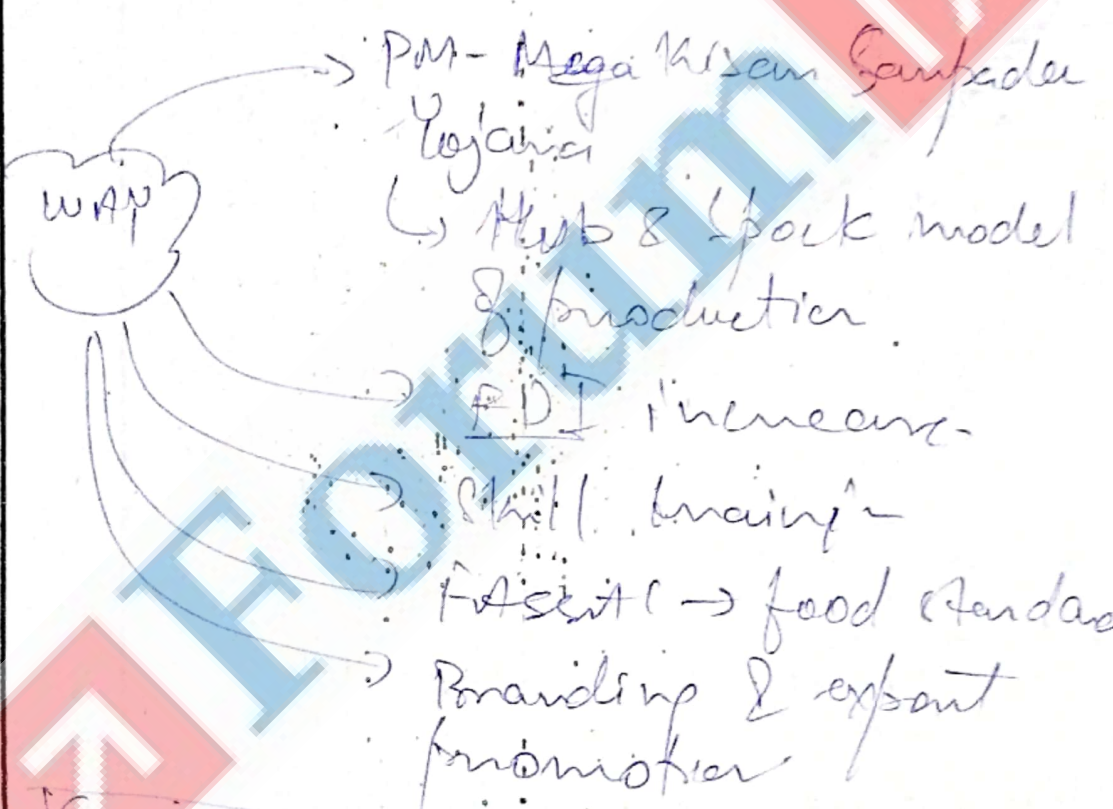 PM- Mega Kisan Sampada
Yojana
WAY
↳ Hub & Spock model
of production
FDI increase
Skill training
→ food standard
Branding & export
promotion
Forum